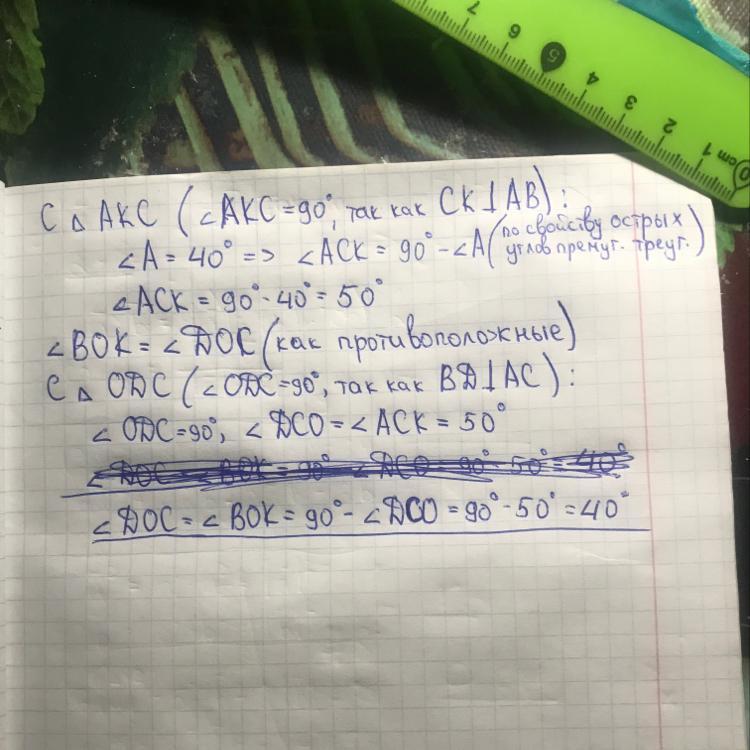 7 6 5 4 3 2 1 0 cm
С △ AKC (∠AKC = 90°, так как CK⊥AB):
∠A = 40° => ∠ACK = 90° - ∠A (по свойству острых
углов прямоуг. треуг.)
∠ACK = 90° - 40° = 50°
∠BOK = ∠DOC (как противоположные)
С △ ODC (∠ODC = 90°, так как BD⊥AC):
∠ODC = 90°, ∠DCO = ∠ACK = 50°
∠DOC = ∠BOK = 90° - ∠DCO = 90° - 50° = 40°
∠DOC = ∠BOK = 90° - ∠DCO = 90° - 50° = 40°